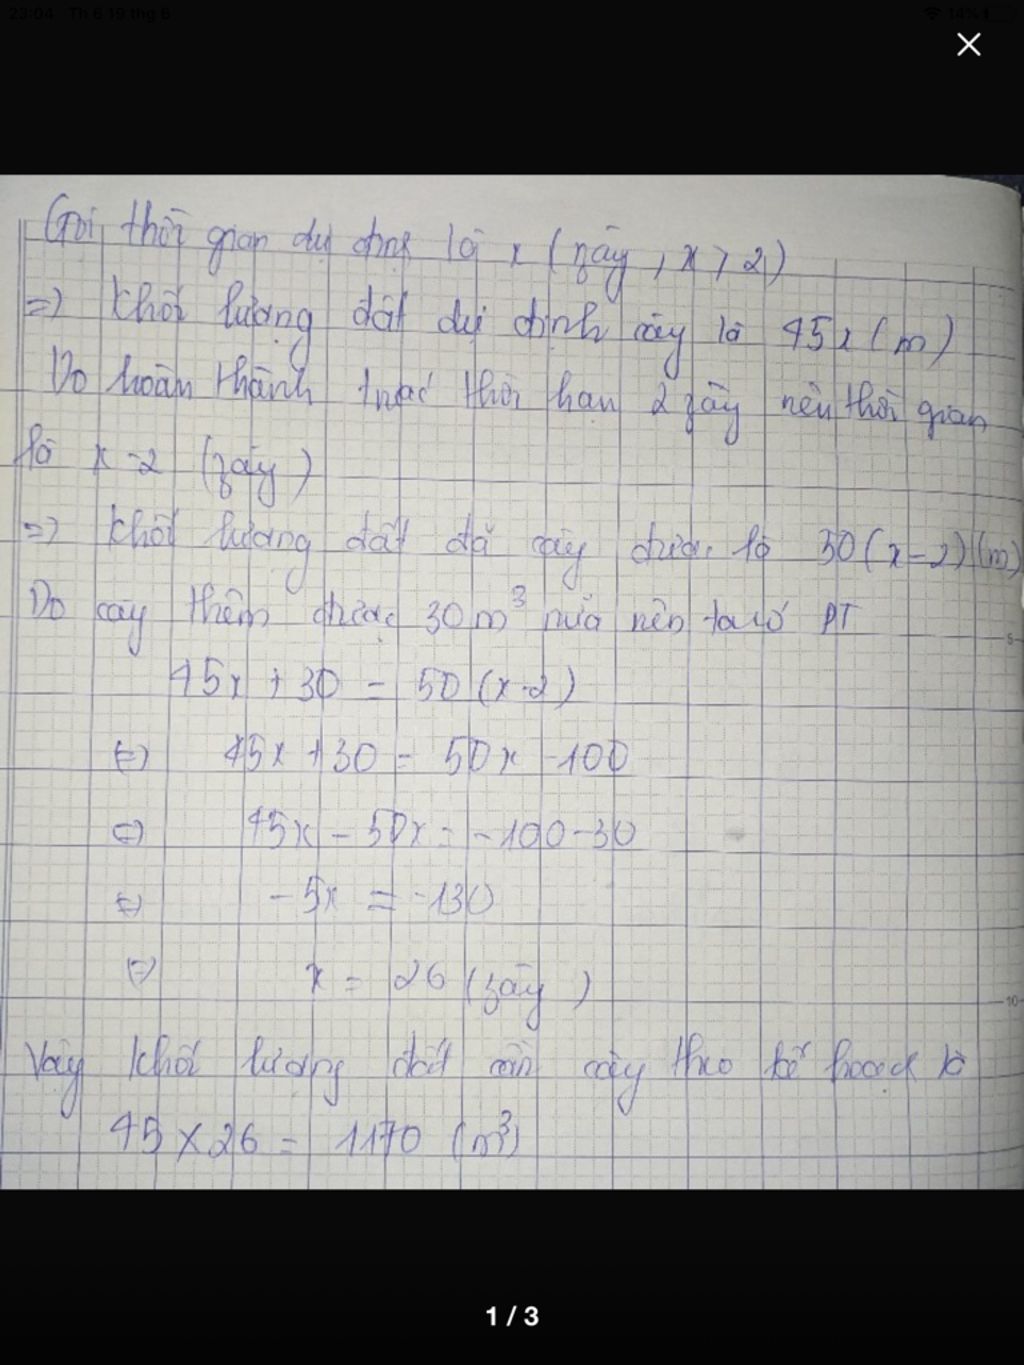 23:04 Th 6 19 thg 6
14%
Gọi thời gian dự định là x (gày, x > 2)
=> Khối lượng đất dự định cày là 45x (m)
Do hoàn thành trước thời hạn 2 gày nên thời gian
là x-2 (gày)
=> Khối lượng đất đã cày được là 50(x-2) (m)
Do cày thêm được 30m³ nữa nên ta có PT
45x + 30 = 50(x-2)
<=> 45x + 30 = 50x - 100
<=> 45x - 50x = -100 - 30
<=> -5x = -130
<=> x = 26 (gày)
Vậy khối lượng đất cần cày theo kế hoạch là
45 x 26 = 1170 (m³)
5
10
1 / 3